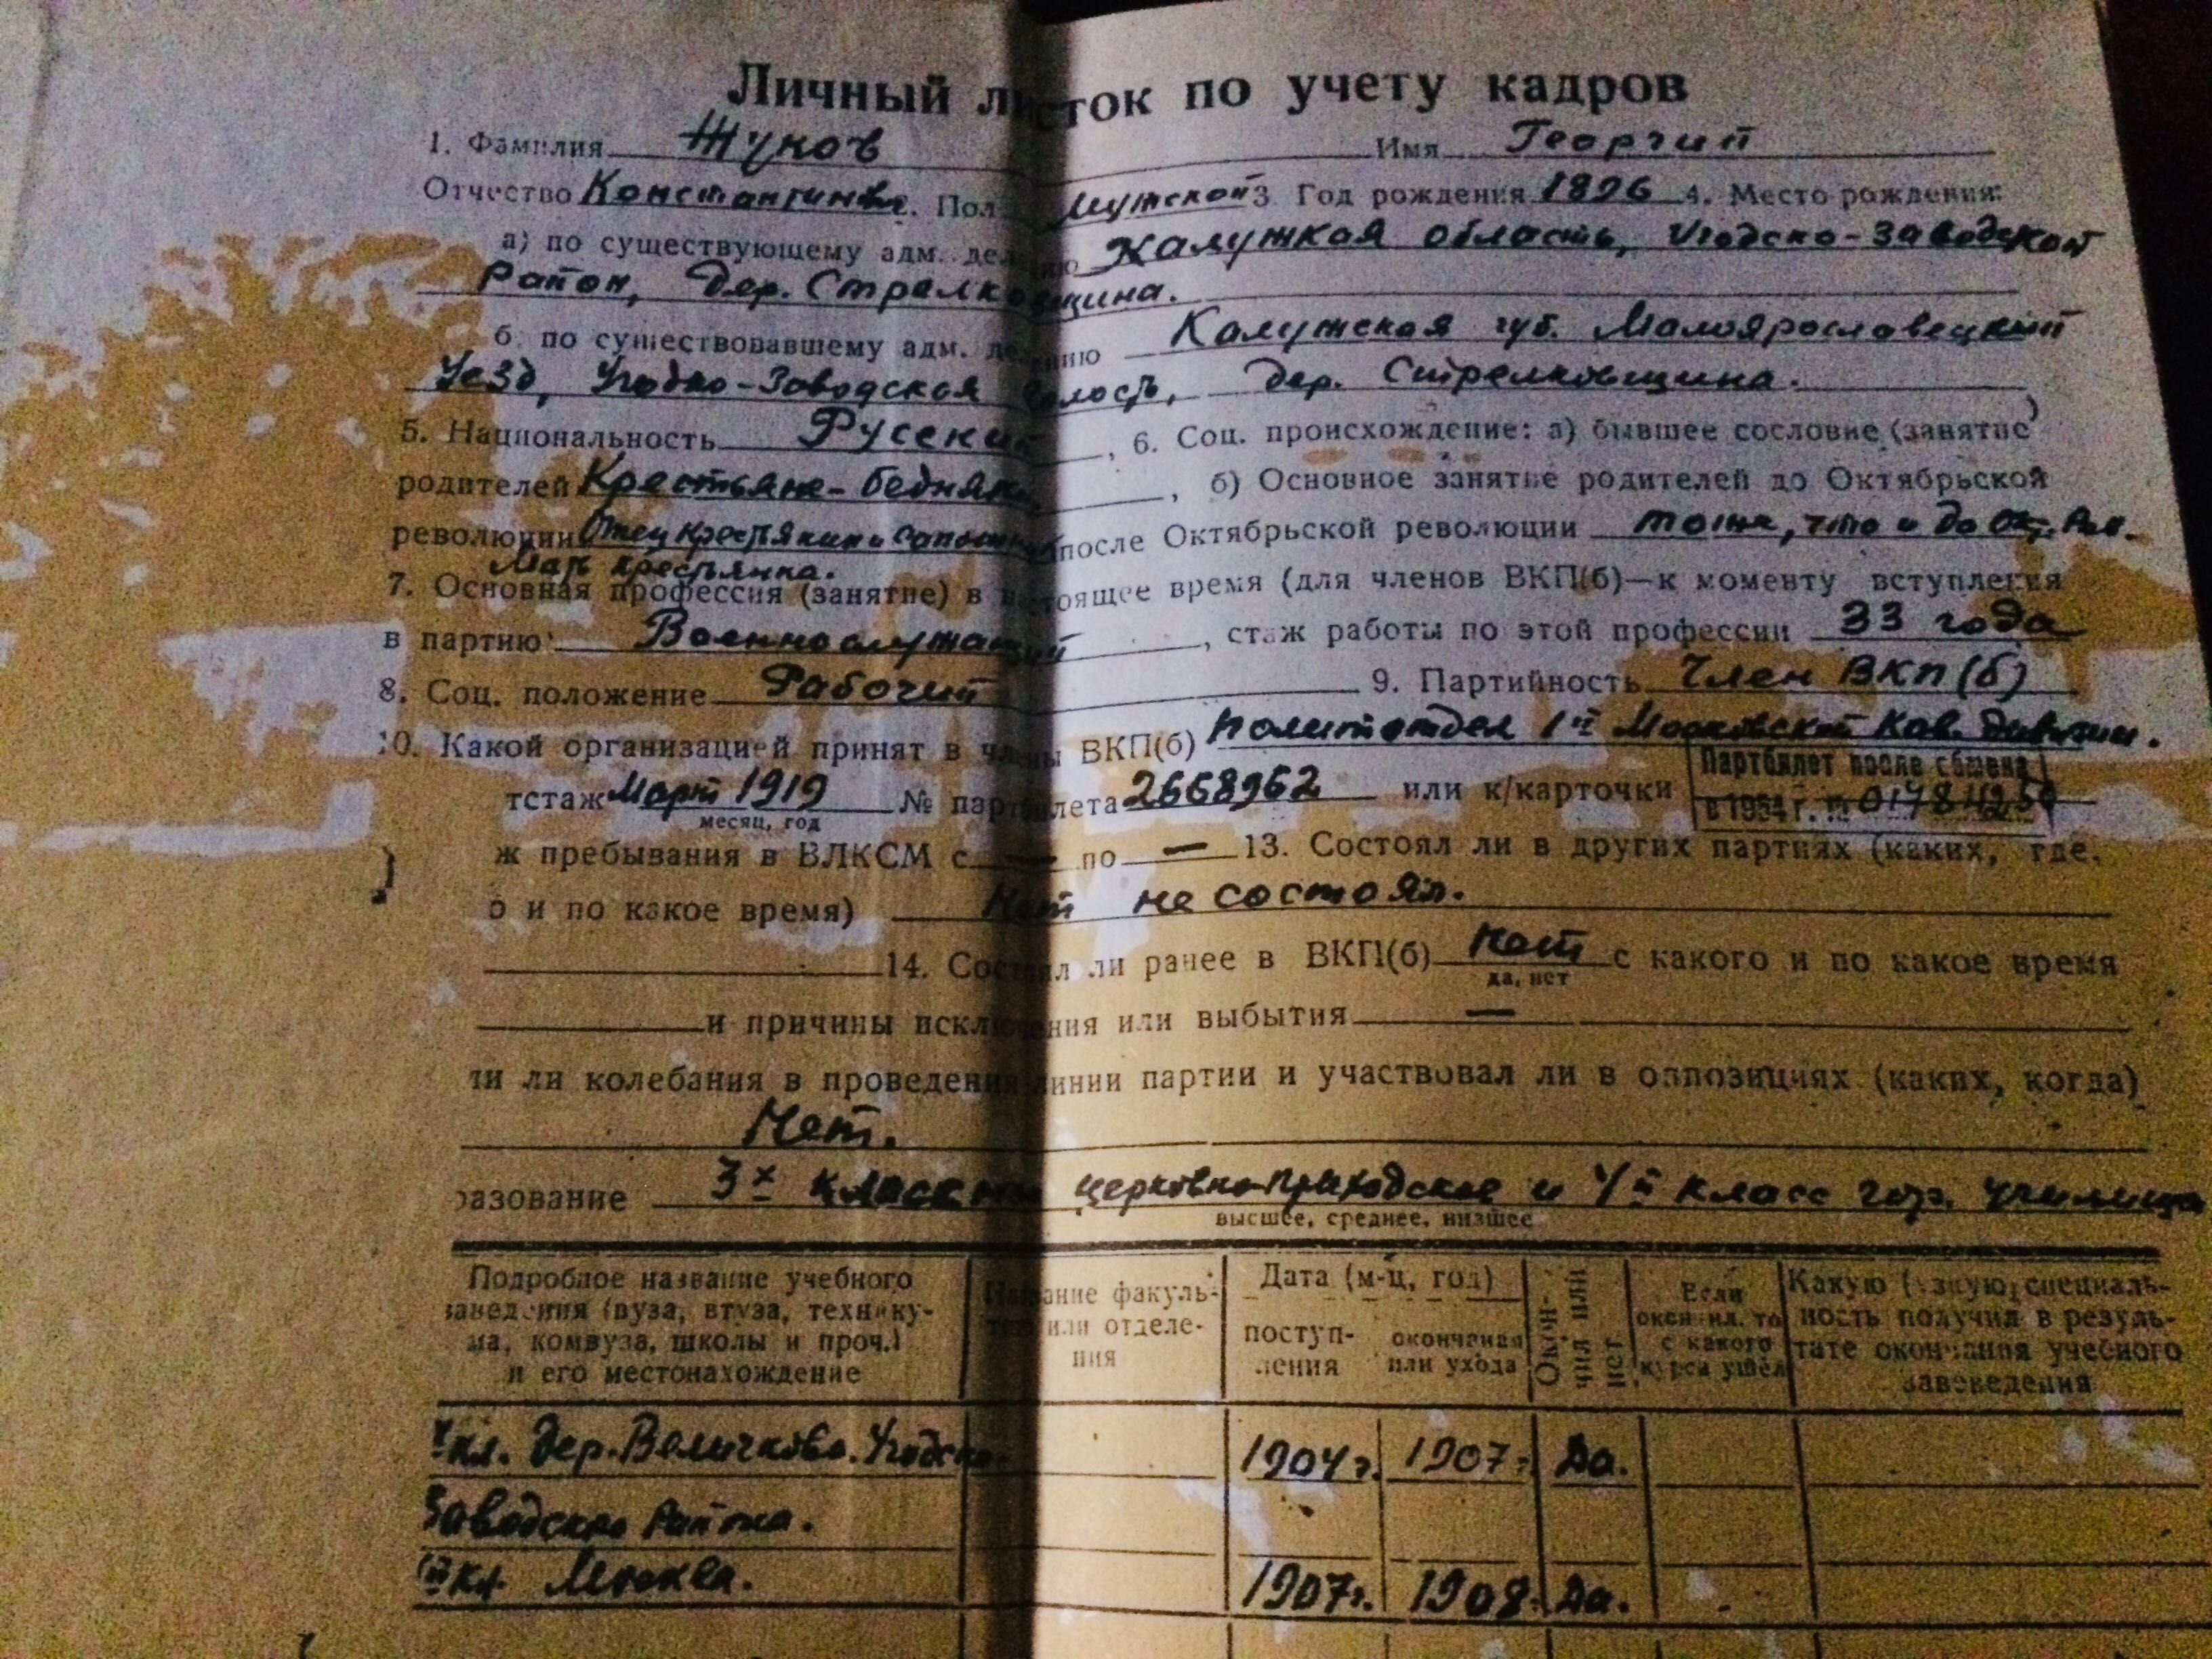 Личный листок по учету кадров
1. Фамилия Жуков Имя Георгий
Отчество Константинов. 2. Пол Мужской 3 Год рождения 1896 4. Место рождения:
а) по существующему адм. делению Калужкая область, Угодско-Заводской
Район, дер. Стрелковщина.
б. по существовавшему адм. делению Калужская губ. Малоярославецкий
Уезд, Угодко-Заводская волость, дер. Стрелковщина.
5. Национальность Русский, 6. Соц. происхождение: а) бывшее сословие (занятие)
родителей Крестьяне-бедняки, б) Основное занятие родителей до Октябрьской
революции Отец крестьянин и сапожник после Октябрьской революции тоже, что и до Ок. Рев.
Мать крестьянка.
7. Основная профессия (занятие) в настоящее время (для членов ВКП(б)—к моменту вступления
в партию) Военнослужащий, стаж работы по этой профессии 33 года
8. Соц. положение Рабочий 9. Партийность Член ВКП(б)
10. Какой организацией принят в члены ВКП(б) Политотдел 1й Московской Кав. дивизии.
тстаж Март 1919 № партбилета 2668962 или к/карточки Партбилет после обмена
месяц, год в 1954 г. №
ж пребывания в ВЛКСМ с — по — 13. Состоял ли в других партиях (каких, где,
о и по какое время) Нет не состоял.
14. Состоял ли ранее в ВКП(б) Нет с какого и по какое время
да, нет
и причины исключения или выбытия —
ли ли колебания в проведении линии партии и участвовал ли в оппозициях (каких, когда)
Нет.
разование 3х классное церковно-приходское и 4й класс гор. училища
высшее, среднее, низшее
Подробное название учебного заведения (вуза, втуза, техникума, комвуза, школы и проч.) и его местонахождение
Название факультета или отделения
Дата (м-ц, год)
поступления
окончания или ухода
Окончил или нет
Если окончил, то с какого курса ушел
Какую (узкую) специальность получил в результате окончания учебного заведения
кл. дер. Величково. Угодско- 1904 г. 1907 г. Да.
Заводского Района.
й кл. Москва. 1907 г. 1908 Да.